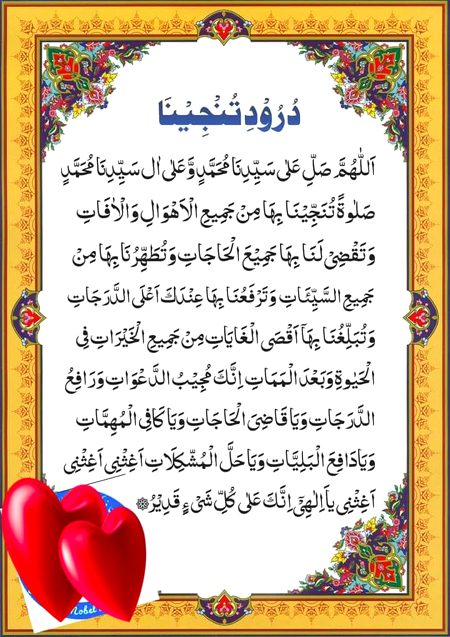 دُرُوْدِ تُنْجِيْنَا
اَللّٰهُمَّ صَلِّ عَلٰى سَيِّدِنَا مُحَمَّدٍ وَّعَلٰى اٰلِ سَيِّدِنَا مُحَمَّدٍ
صَلٰوةً تُنَجِّيْنَا بِهَا مِنْ جَمِيعِ الْاَهْوَالِ وَالْاٰفَاتِ
وَتَقْضِىْ لَنَا بِهَا جَمِيْعَ الْحَاجَاتِ وَتُطَهِّرُنَا بِهَا مِنْ
جَمِيعِ السَّيِّئَاتِ وَتَرْفَعُنَا بِهَا عِنْدَكَ اَعْلَى الدَّرَجَاتِ
وَتُبَلِّغُنَا بِهَآ اَقْصَى الْغَايَاتِ مِنْ جَمِيعِ الْخَيْرَاتِ فِى
الْحَيٰوةِ وَبَعْدَ الْمَمَاتِ اِنَّكَ مُجِيْبُ الدَّعْوَاتِ وَرَافِعُ
الدَّرَجَاتِ وَيَا قَاضِىَ الْحَاجَاتِ وَيَا كَافِىَ الْمُهِمَّاتِ
وَيَا دَافِعَ الْبَلِيَّاتِ وَيَا حَلَّ الْمُشْكِلَاتِ اَغِثْنِى اَغِثْنِى
اَغِثْنِى يَا اِلٰهِىْ اِنَّكَ عَلٰى كُلِّ شَىْءٍ قَدِيْرٌ
Nobel